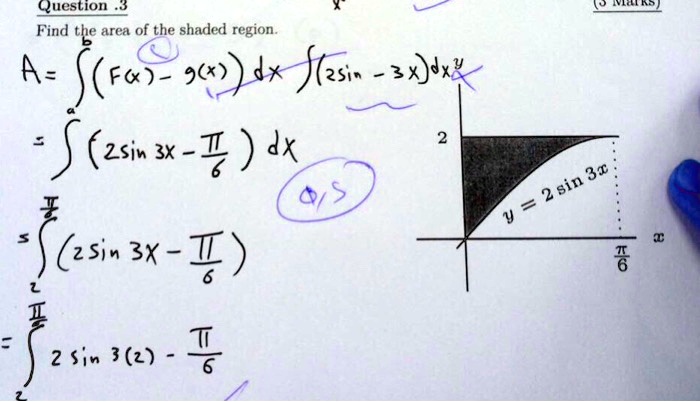 Question .3
(3 Marks)
Find the area of the shaded region.
A = ∫ₐᵇ (F(x) - g(x)) dx ∫(2sin - 3x)dx
= ∫ (2sin 3x - π/6) dx
0,5
= ∫₂^(π/6) (2sin 3x - π/6)
= ∫₂^(π/6) 2 sin 3(2) - π/6
y
2
y = 2 sin 3x
x
π/6